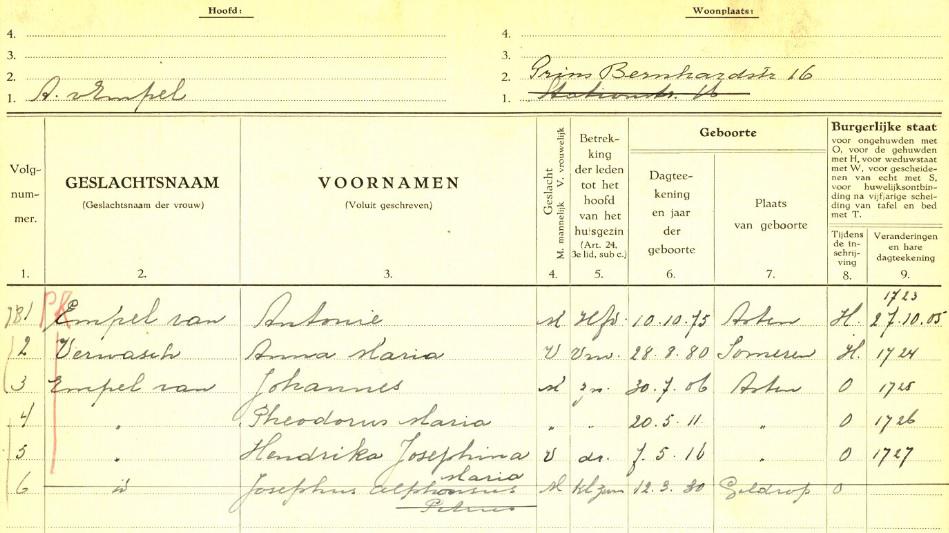 Hoofd:
Woonplaats:
4.
4.
3.
3.
2.
2. Prins Bernhardstr 16
1. A. v Empel
1. Stationstr. 16
Volg-
num-
mer.
1.
GESLACHTSNAAM
(Geslachtsnaam der vrouw)
2.
VOORNAMEN
(Voluit geschreven)
3.
Geslacht
M. mannelijk V. vrouwelijk
4.
Betrek-
king
der leden
tot het
hoofd
van het
huisgezin
(Art. 24,
3e lid, sub c.)
5.
Geboorte
Dagtee-
kening
en jaar
der
geboorte
6.
Plaats
van geboorte
7.
Burgerlijke staat
voor ongehuwden met
O, voor de gehuwden
met H, voor weduwstaat
met W, voor gescheide-
nen van echt met S,
voor huwelijksontbin-
ding na vijfjarige schei-
ding van tafel en bed
met T.
Tijdens
de in-
schrij-
ving
8.
Veranderingen
en hare
dagteekening
9.
PK
1723
1 Empel van Antonie M Hfd. 10.10.75 Asten H. 27.10.05
2 Verwasch Anna Maria V Vm. 28.8.80 Someren H. 1724
3 Empel van Johannes M zn. 30.7.06 Asten O 1725
4 " Theodorus Maria " " 20.5.11 " O 1726
5 " Hendrika Josephina V dr. 7.5.16 " O 1727
Maria
6 Josephus Alphonsus M Klzn 12.3.30 Geldrop O
Petrus